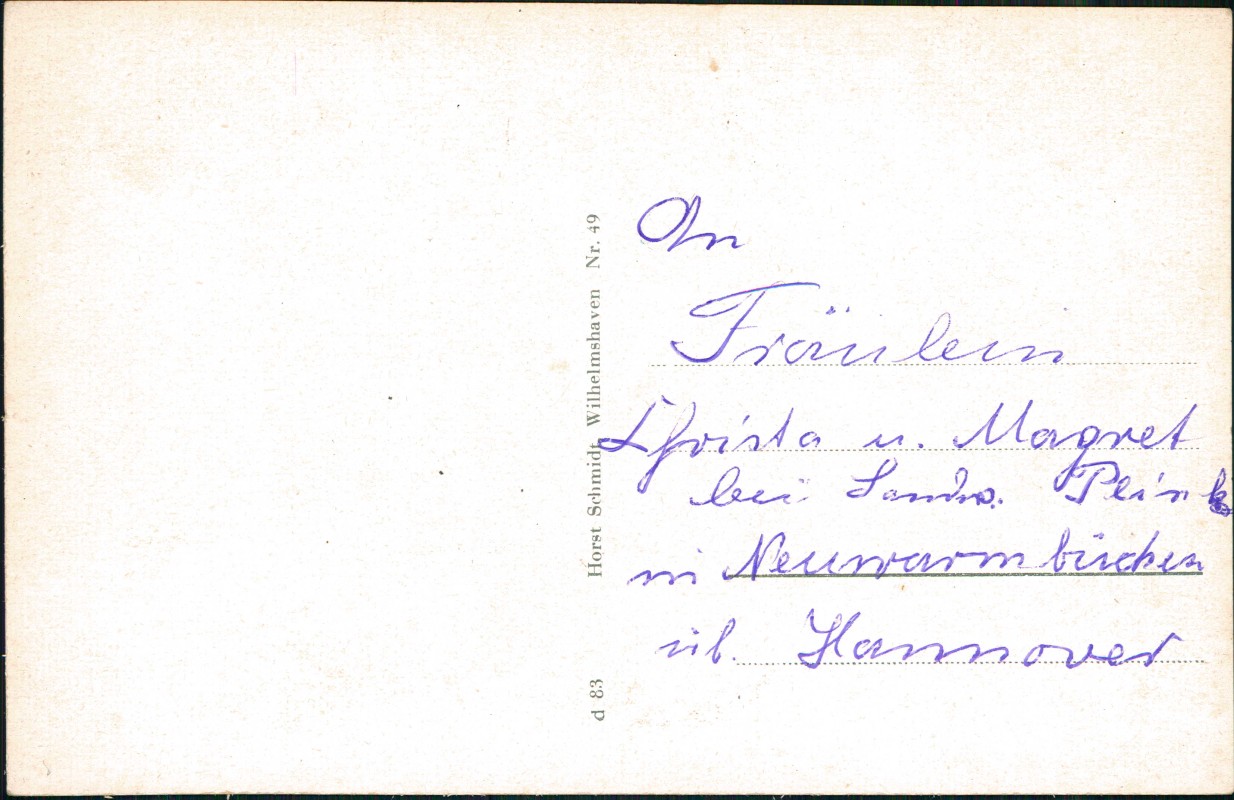 Horst Schmidt, Wilhelmshaven Nr. 49
d 83
An
Fräulein
Christa u. Magret
bei Plink
in Neuwarmbüchen
üb. Hannover